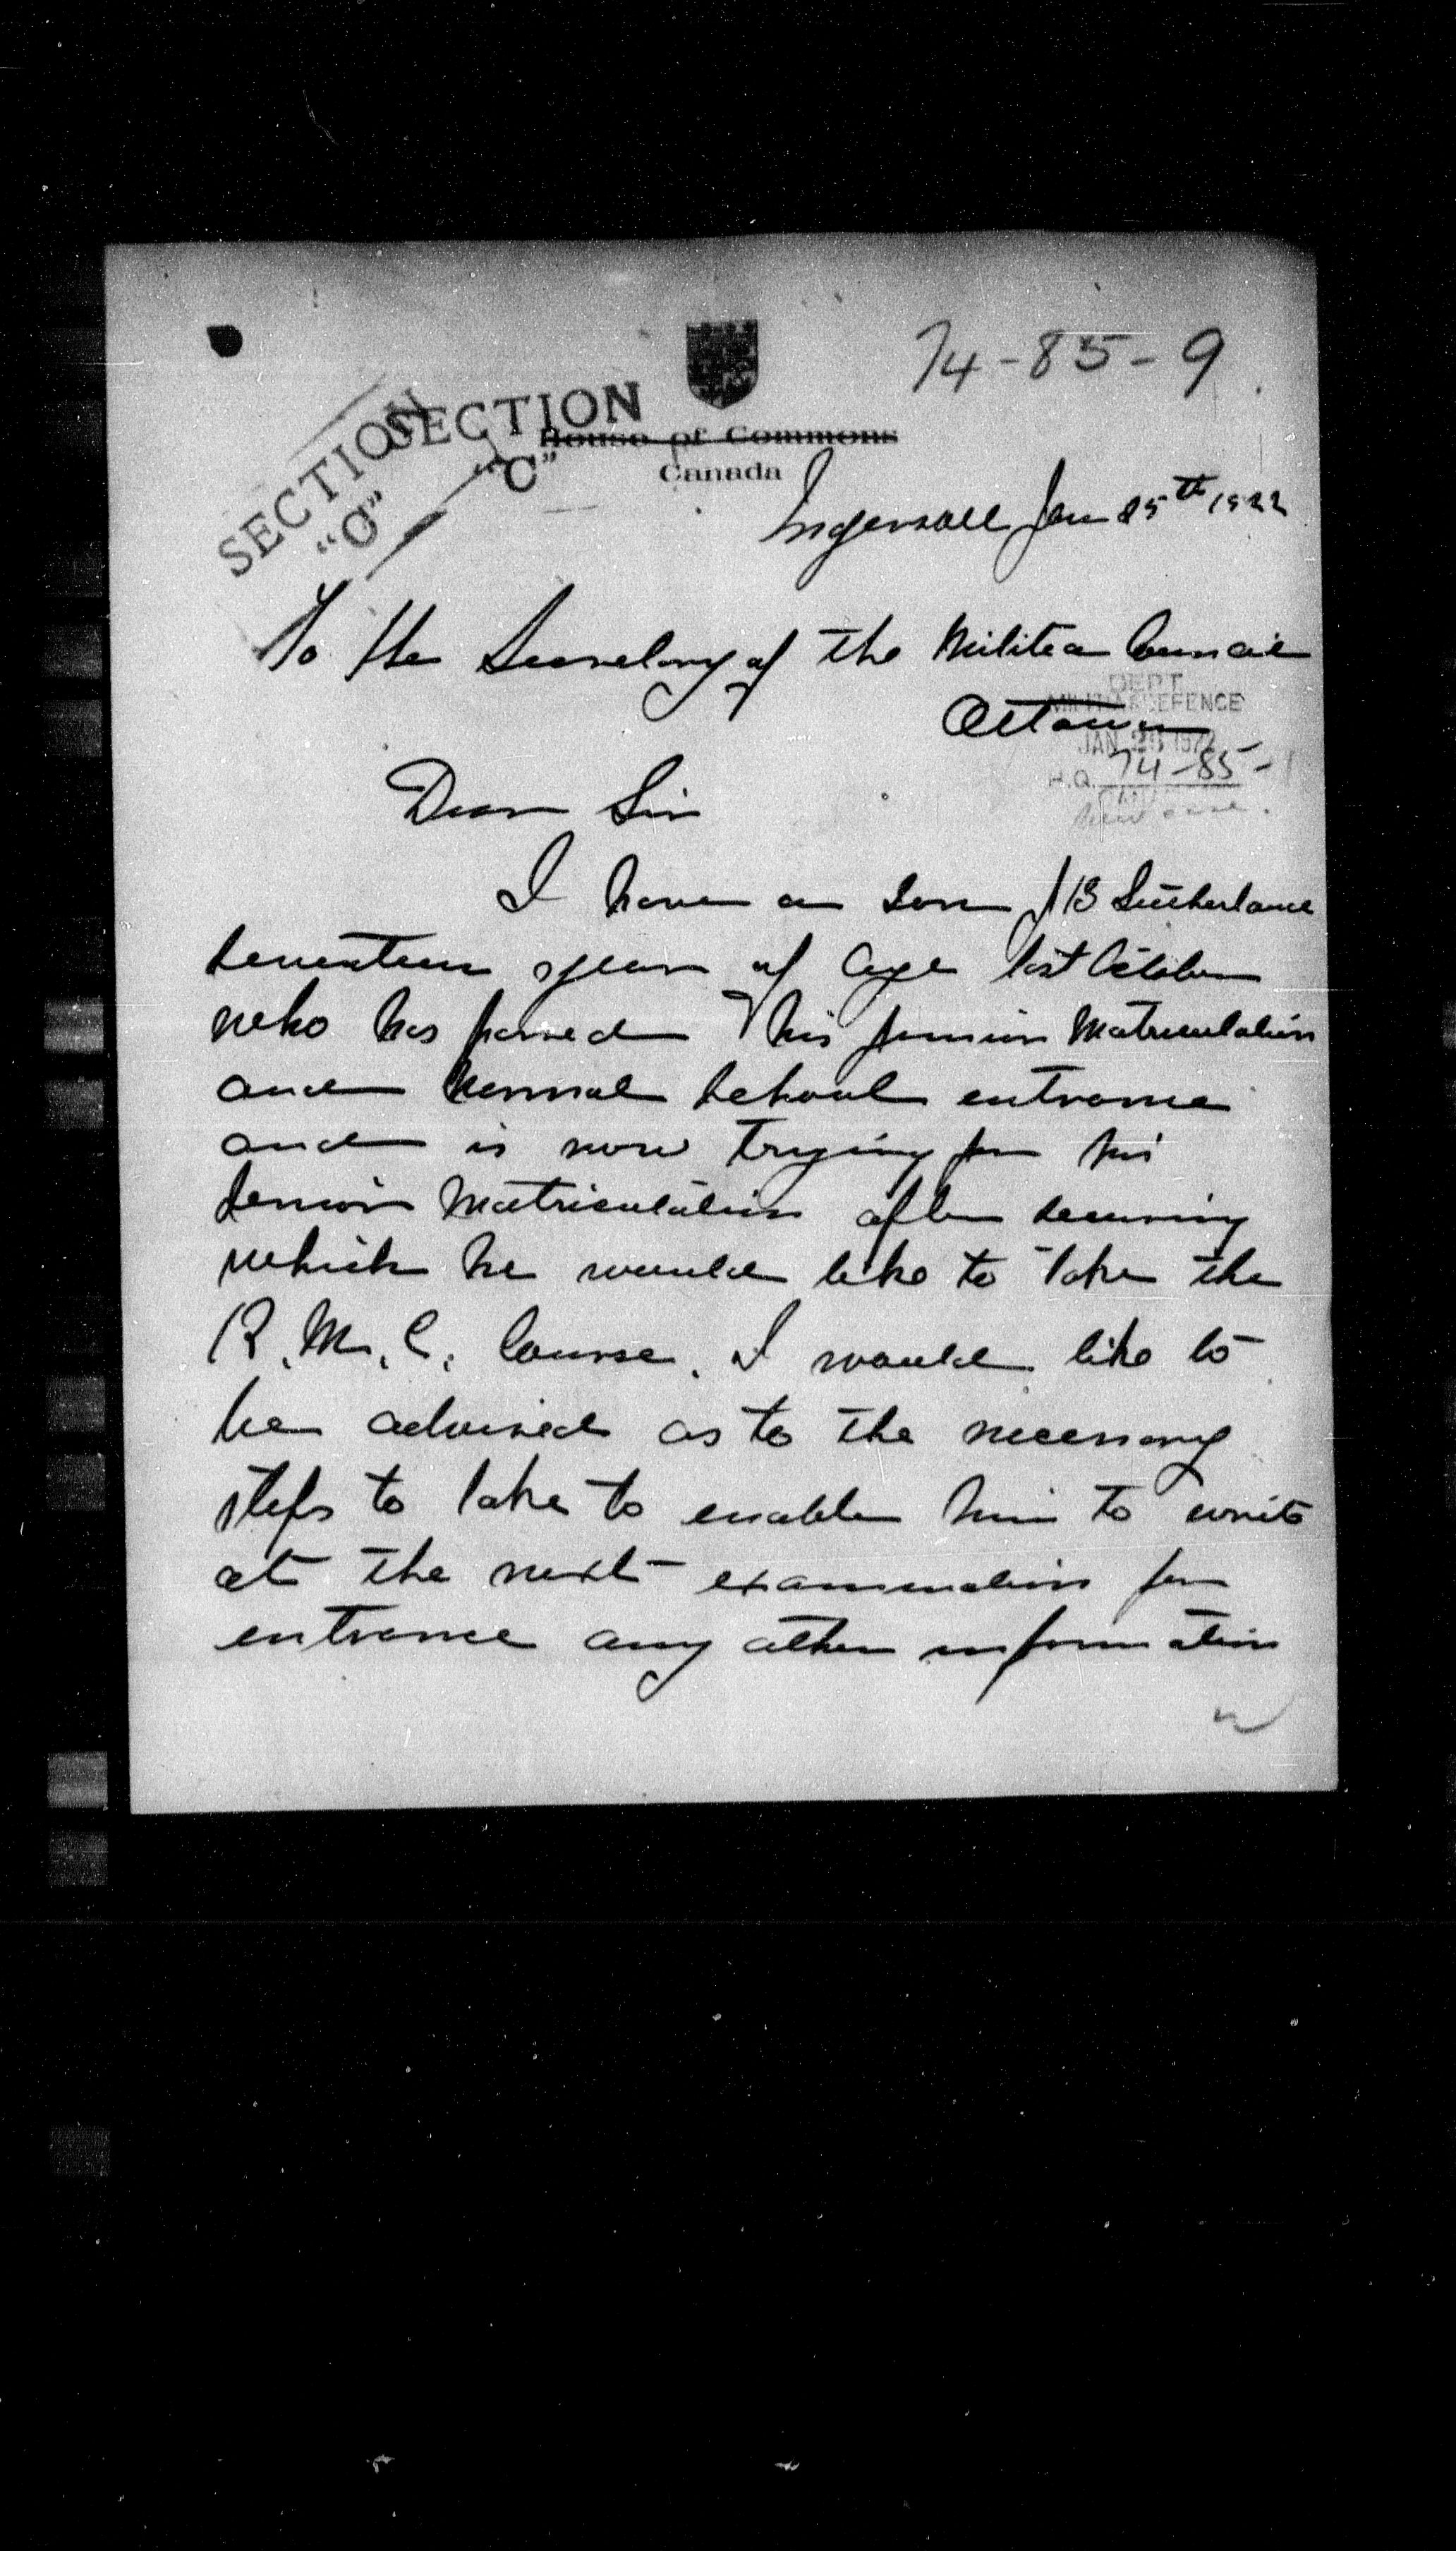 74-85-9
SECTION
"C"
SECTION
"O"
House of Commons
Canada
Ingersoll Jan 25th 1922
To the Secretary of the Militia Council
Ottawa
DEPT
MILITIA & DEFENCE
JAN 28 1922
H.Q. 74-85-
Dear Sir
I have a son J B Sutherland
seventeen years of age last October
who has passed his junior Matriculation
and Normal School entrance
and is now trying for his
senior Matriculation after securing
which he would like to take the
R.M.C. Course. I would like to
be advised as to the necessary
steps to take to enable him to write
at the next examination for
entrance any other information